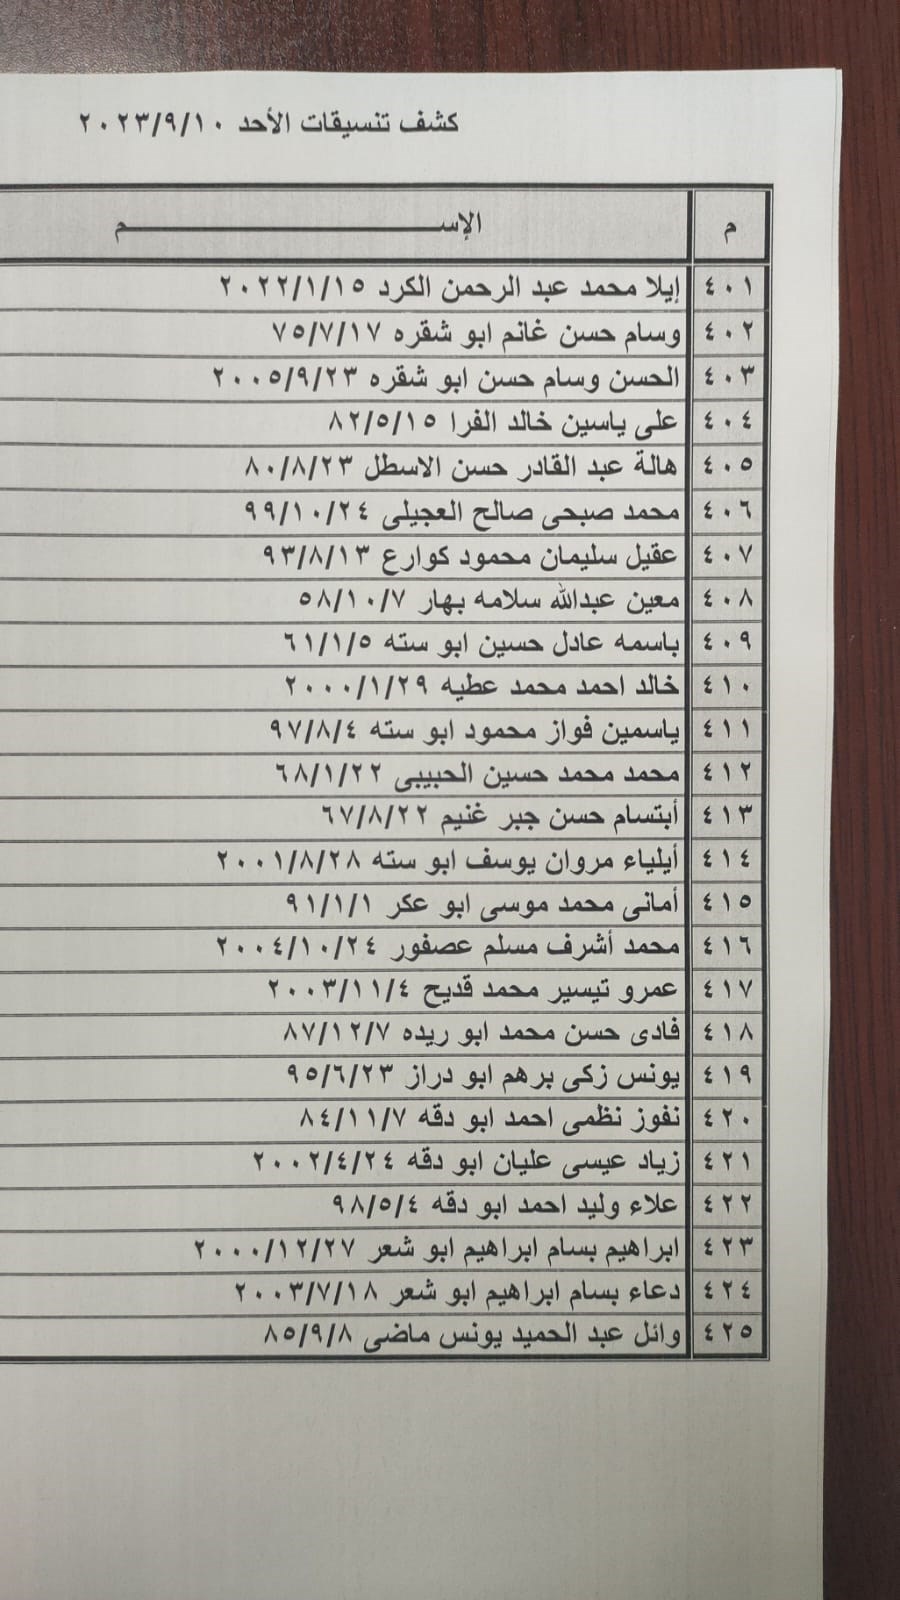 كشف تنسيقات الأحد ٢٠٢٣/٩/١٠
م الإســـــــم
٤٠١ إيلا محمد عبد الرحمن الكرد ٢٠٢٢/١/١٥
٤٠٢ وسام حسن غانم ابو شقره ٧٥/٧/١٧
٤٠٣ الحسن وسام حسن ابو شقره ٢٠٠٥/٩/٢٣
٤٠٤ على ياسين خالد الفرا ٨٢/٥/١٥
٤٠٥ هالة عبد القادر حسن الاسطل ٨٠/٨/٢٣
٤٠٦ محمد صبحى صالح العجيلى ٩٩/١٠/٢٤
٤٠٧ عقيل سليمان محمود كوارع ٩٣/٨/١٣
٤٠٨ معين عبدالله سلامه بهار ٥٨/١٠/٧
٤٠٩ باسمه عادل حسين ابو سته ٦١/١/٥
٤١٠ خالد احمد محمد عطيه ٢٠٠٠/١/٢٩
٤١١ ياسمين فواز محمود ابو سته ٩٧/٨/٤
٤١٢ محمد محمد حسين الحبيبى ٦٨/١/٢٢
٤١٣ أبتسام حسن جبر غنيم ٦٧/٨/٢٢
٤١٤ أيلياء مروان يوسف ابو سته ٢٠٠١/٨/٢٨
٤١٥ أمانى محمد موسى ابو عكر ٩١/١/١
٤١٦ محمد أشرف مسلم عصفور ٢٠٠٤/١٠/٢٤
٤١٧ عمرو تيسير محمد قديح ٢٠٠٣/١١/٤
٤١٨ فادى حسن محمد ابو ريده ٨٧/١٢/٧
٤١٩ يونس زكى برهم ابو دراز ٩٥/٦/٢٣
٤٢٠ نفوز نظمى احمد ابو دقه ٨٤/١١/٧
٤٢١ زياد عيسى عليان ابو دقه ٢٠٠٢/٤/٢٤
٤٢٢ علاء وليد احمد ابو دقه ٩٨/٥/٤
٤٢٣ ابراهيم بسام ابراهيم ابو شعر ٢٠٠٠/١٢/٢٧
٤٢٤ دعاء بسام ابراهيم ابو شعر ٢٠٠٣/٧/١٨
٤٢٥ وائل عبد الحميد يونس ماضى ٨٥/٩/٨